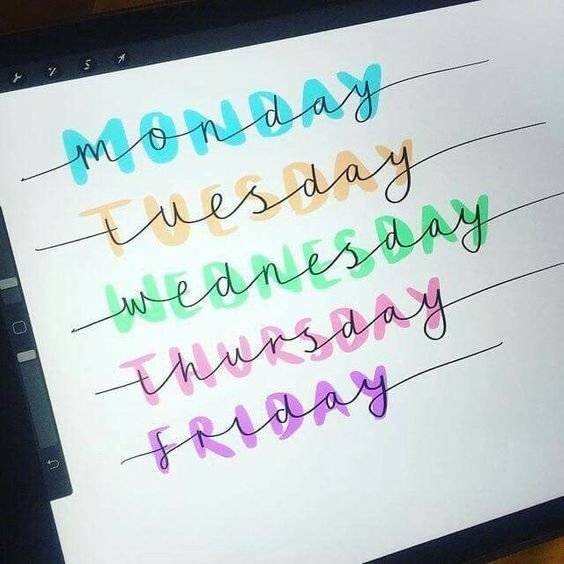 MONDAY
monday
TUESDAY
tuesday
WEDNESDAY
wednesday
THURSDAY
thursday
FRIDAY
friday